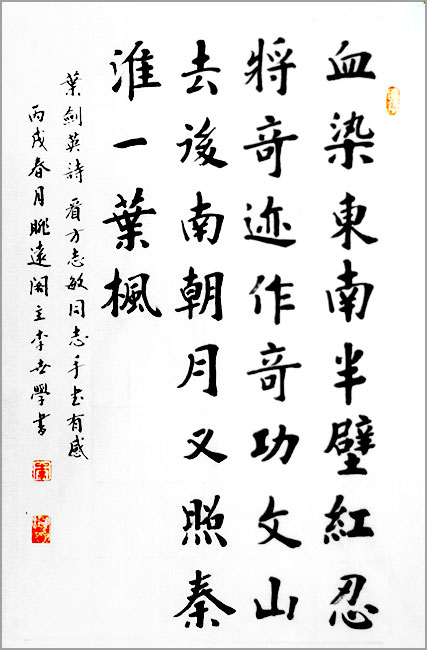 血染東南半壁紅忍
將奇迹作奇功文山
去後南朝月又照秦
淮一葉楓
葉劍英詩看方志敏同志手书有感
丙戌春月眺遠阁主李世學書